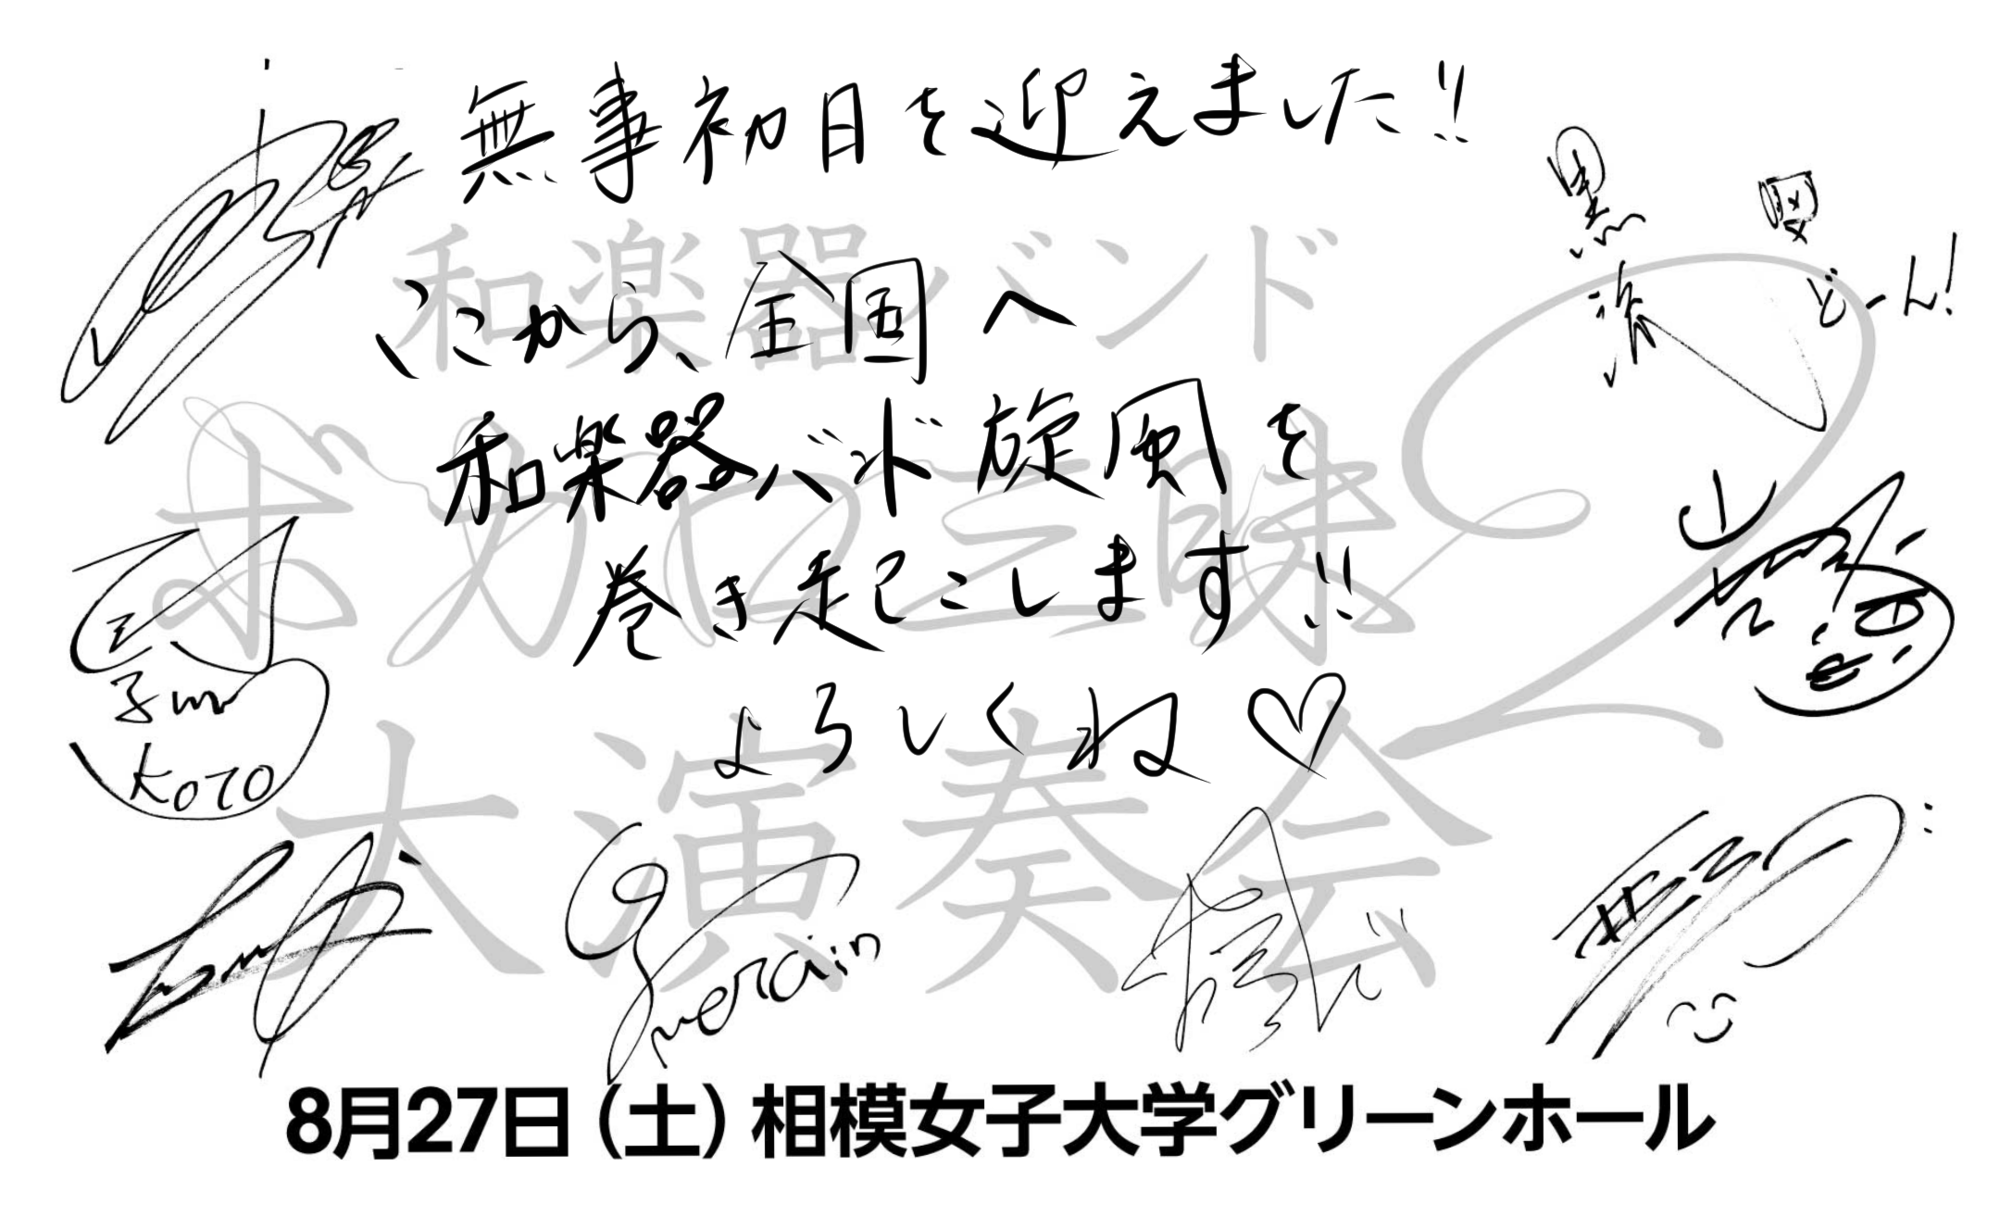 無事初日を迎えました!!
和楽器バンド
ここから、全国へ
和楽器バンド旋風を
ボカロ三昧2
巻き起こします!!
よろしくね♡
大演奏会
黒流
どーん!
山葵
KOTO
8月27日（土）相模女子大学グリーンホール